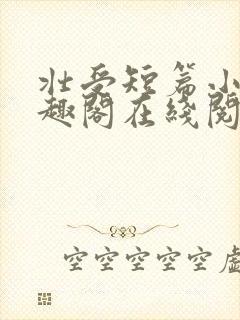 壮受短篇小
趣阁在线阅
空空空空空虚